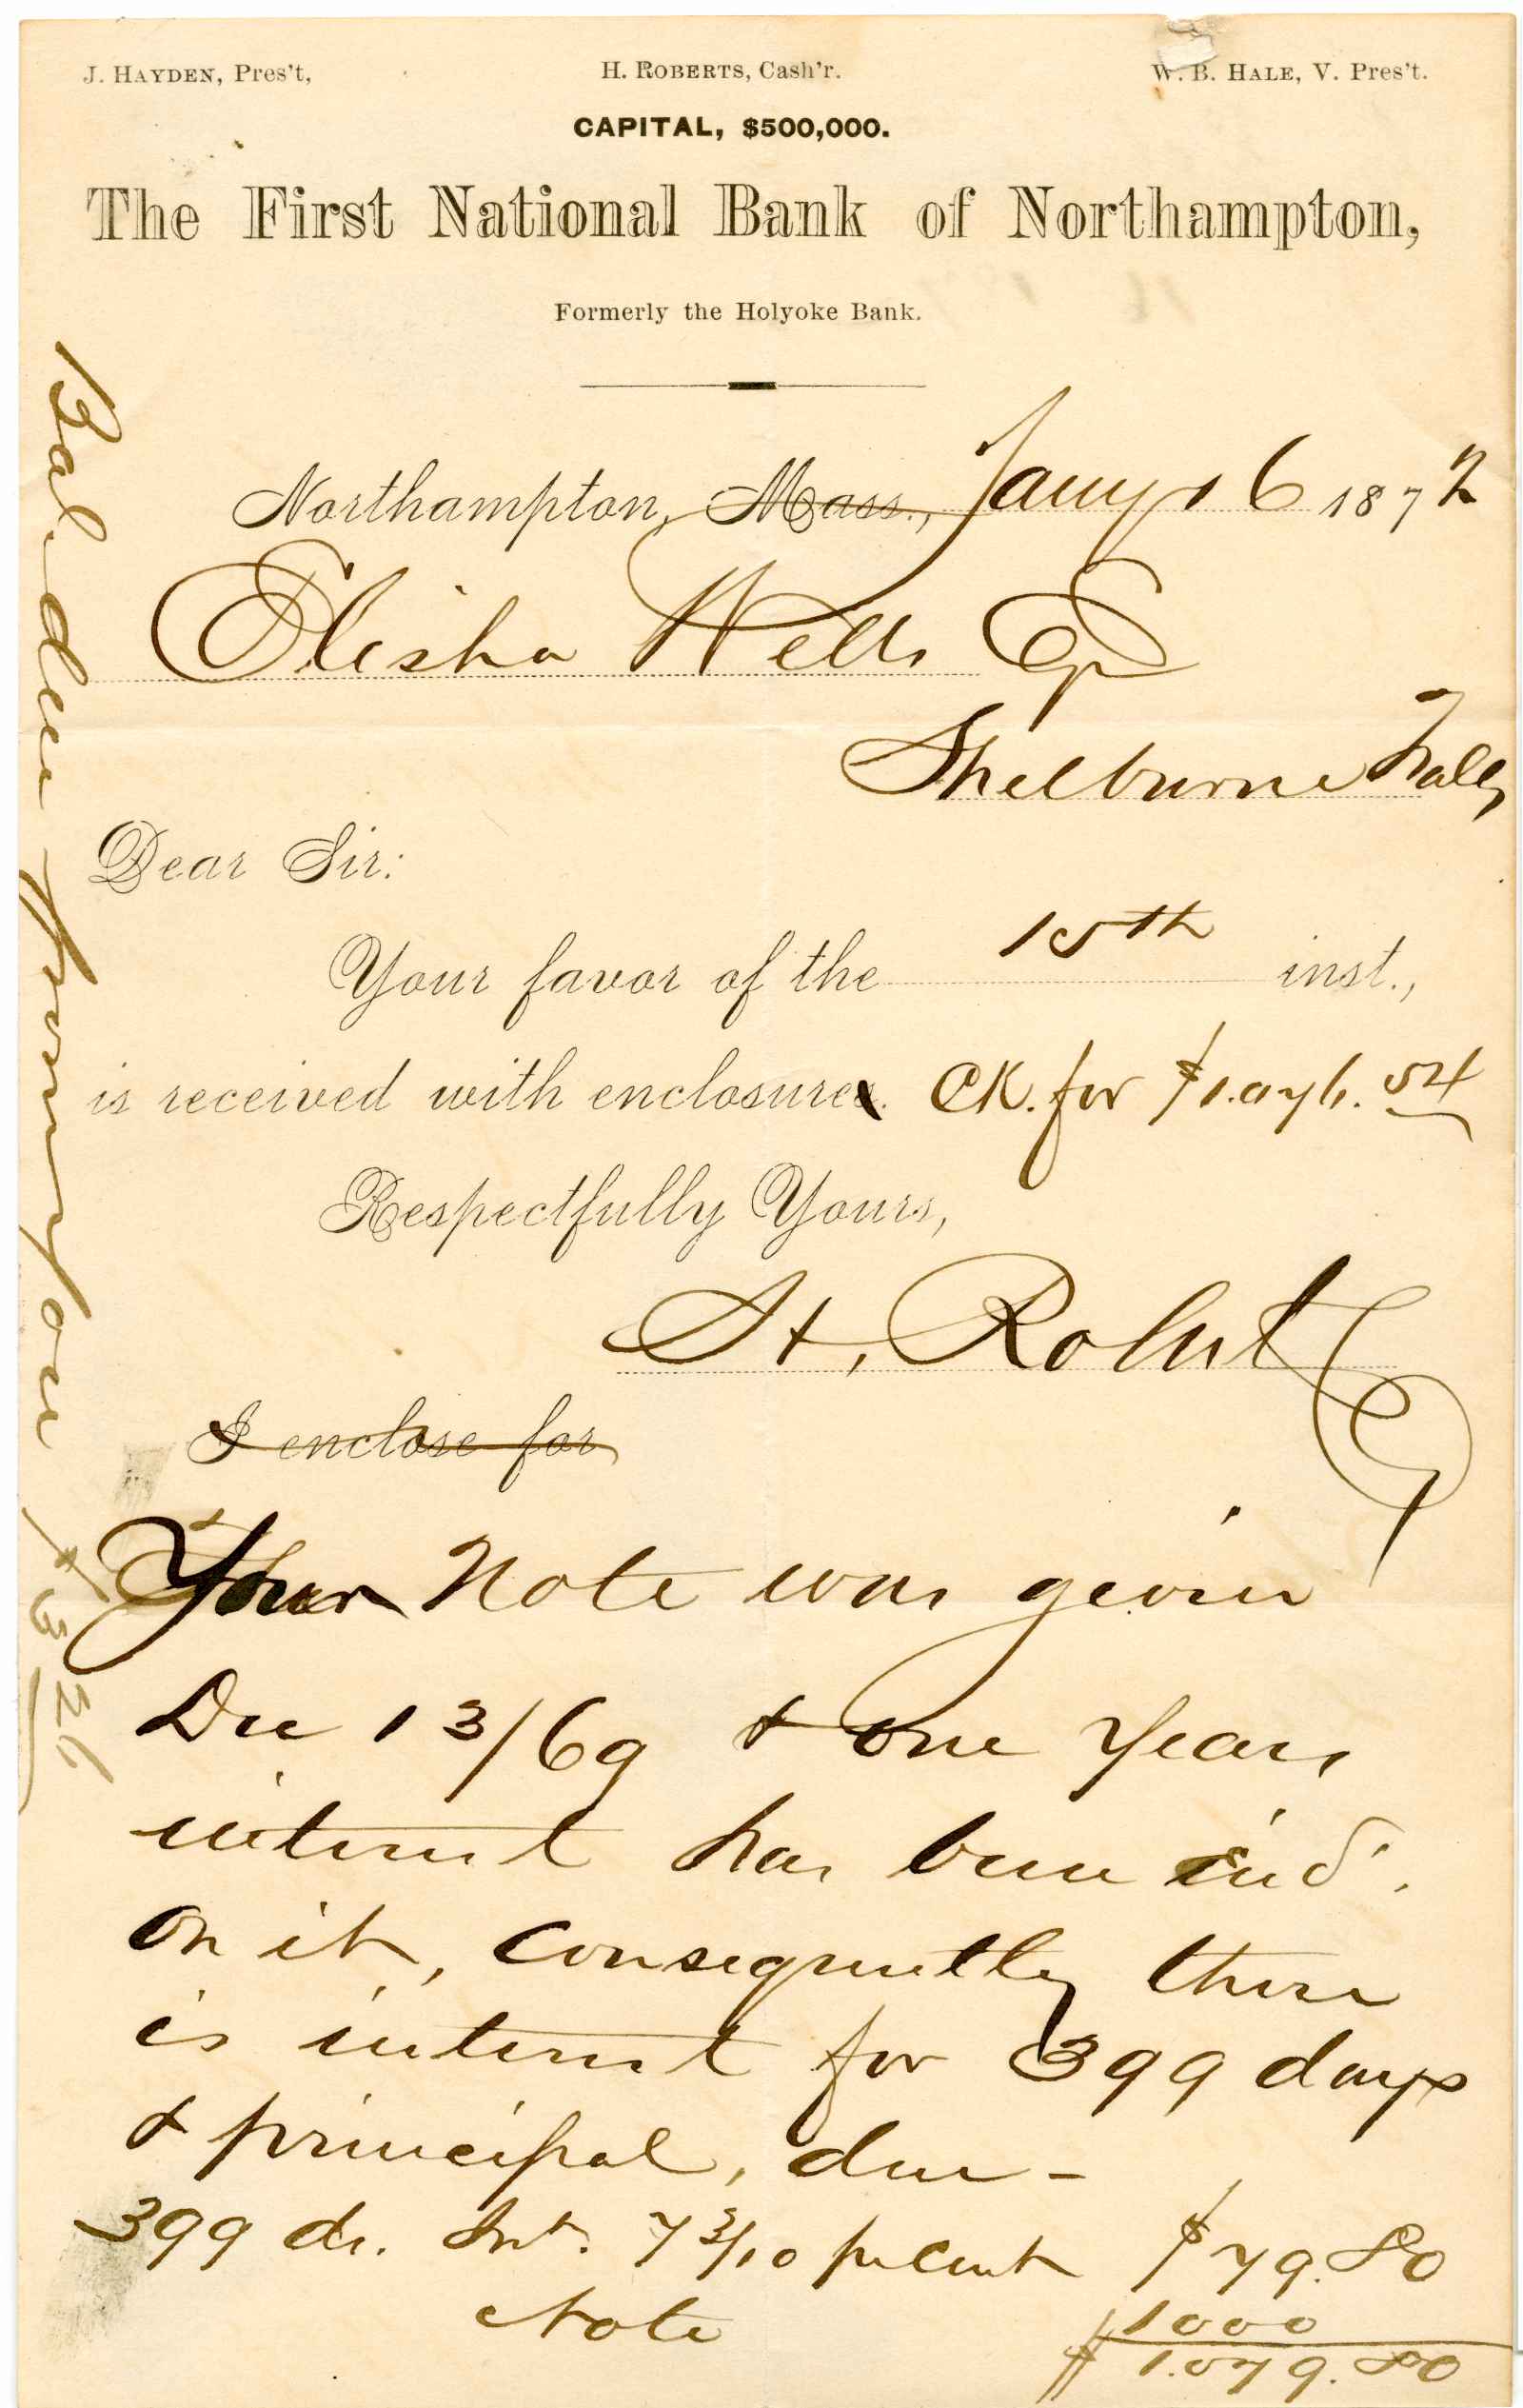 J. HAYDEN, Pres't,
H. ROBERTS, Cash'r.
W. B. HALE, V. Pres't.
CAPITAL, $500,000.
The First National Bank of Northampton,
Formerly the Holyoke Bank.
Northampton, Mass., Jany 16 1872
Elisha Wells Esq
Shelburne Falls
Dear Sir:
Your favor of the 15th inst.,
is received with enclosures. CK. for $1.076.54
Respectfully Yours,
H. Roberts
I enclose for
Your Note was given
Dec 13/69 & one years
interest has been ind.
on it, consequently there
is interest for 399 days
& principal, due -
399 ds. Int. 7 3/10 per cent $79.80
Note 1000
$1.079.80
Bal. due from you $3 26